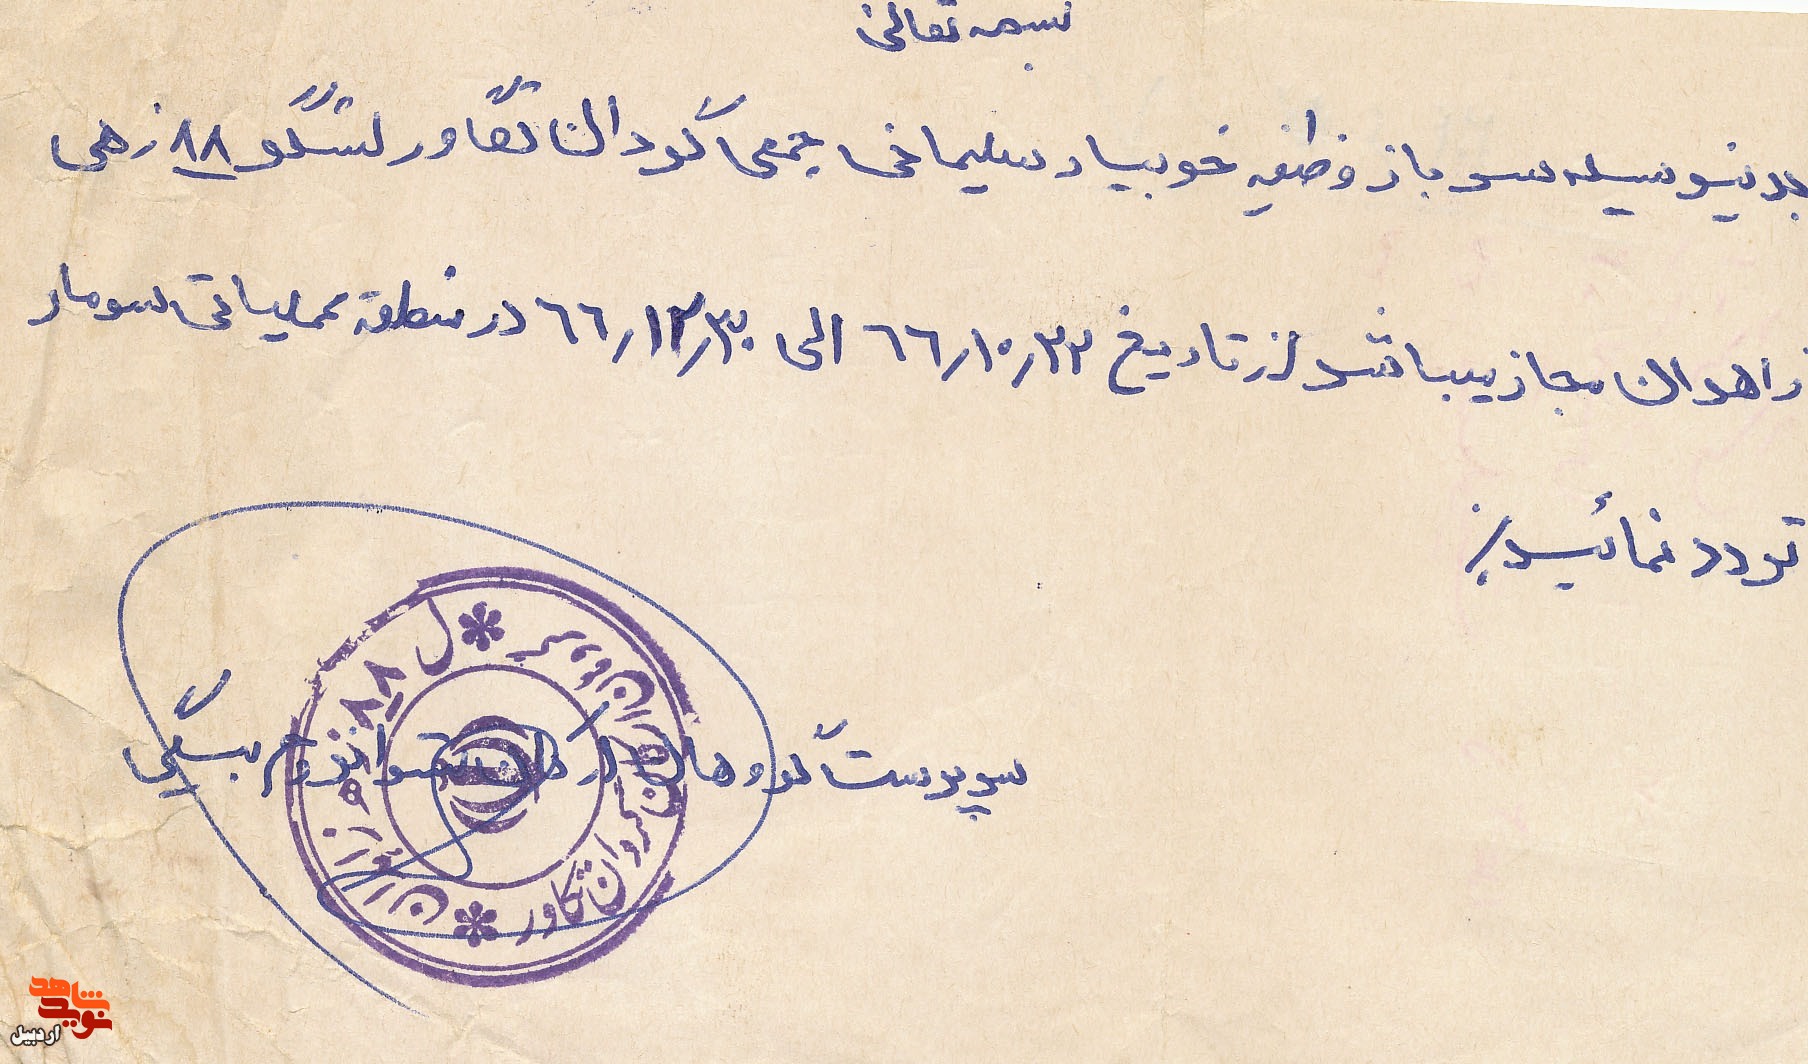 بسمه تعالی
بدینوسیله سرباز وظیفه خوبیار سلیمانی جمعی گردان تکاور لشگر ۸۸ زرهی
زاهدان مجاز میباشد از تاریخ ۶۶٫۱۰٫۲۳ الی ۶۶٫۱۲٫۳۰ در منطقه عملیاتی سومار
تردد نمائید٪
سرپرست گروهان ارکان ستوانسوم بستگی
ل ۸۸ زرهی زاهدان
گردان تکاور
نوید شاهد
اردبیل